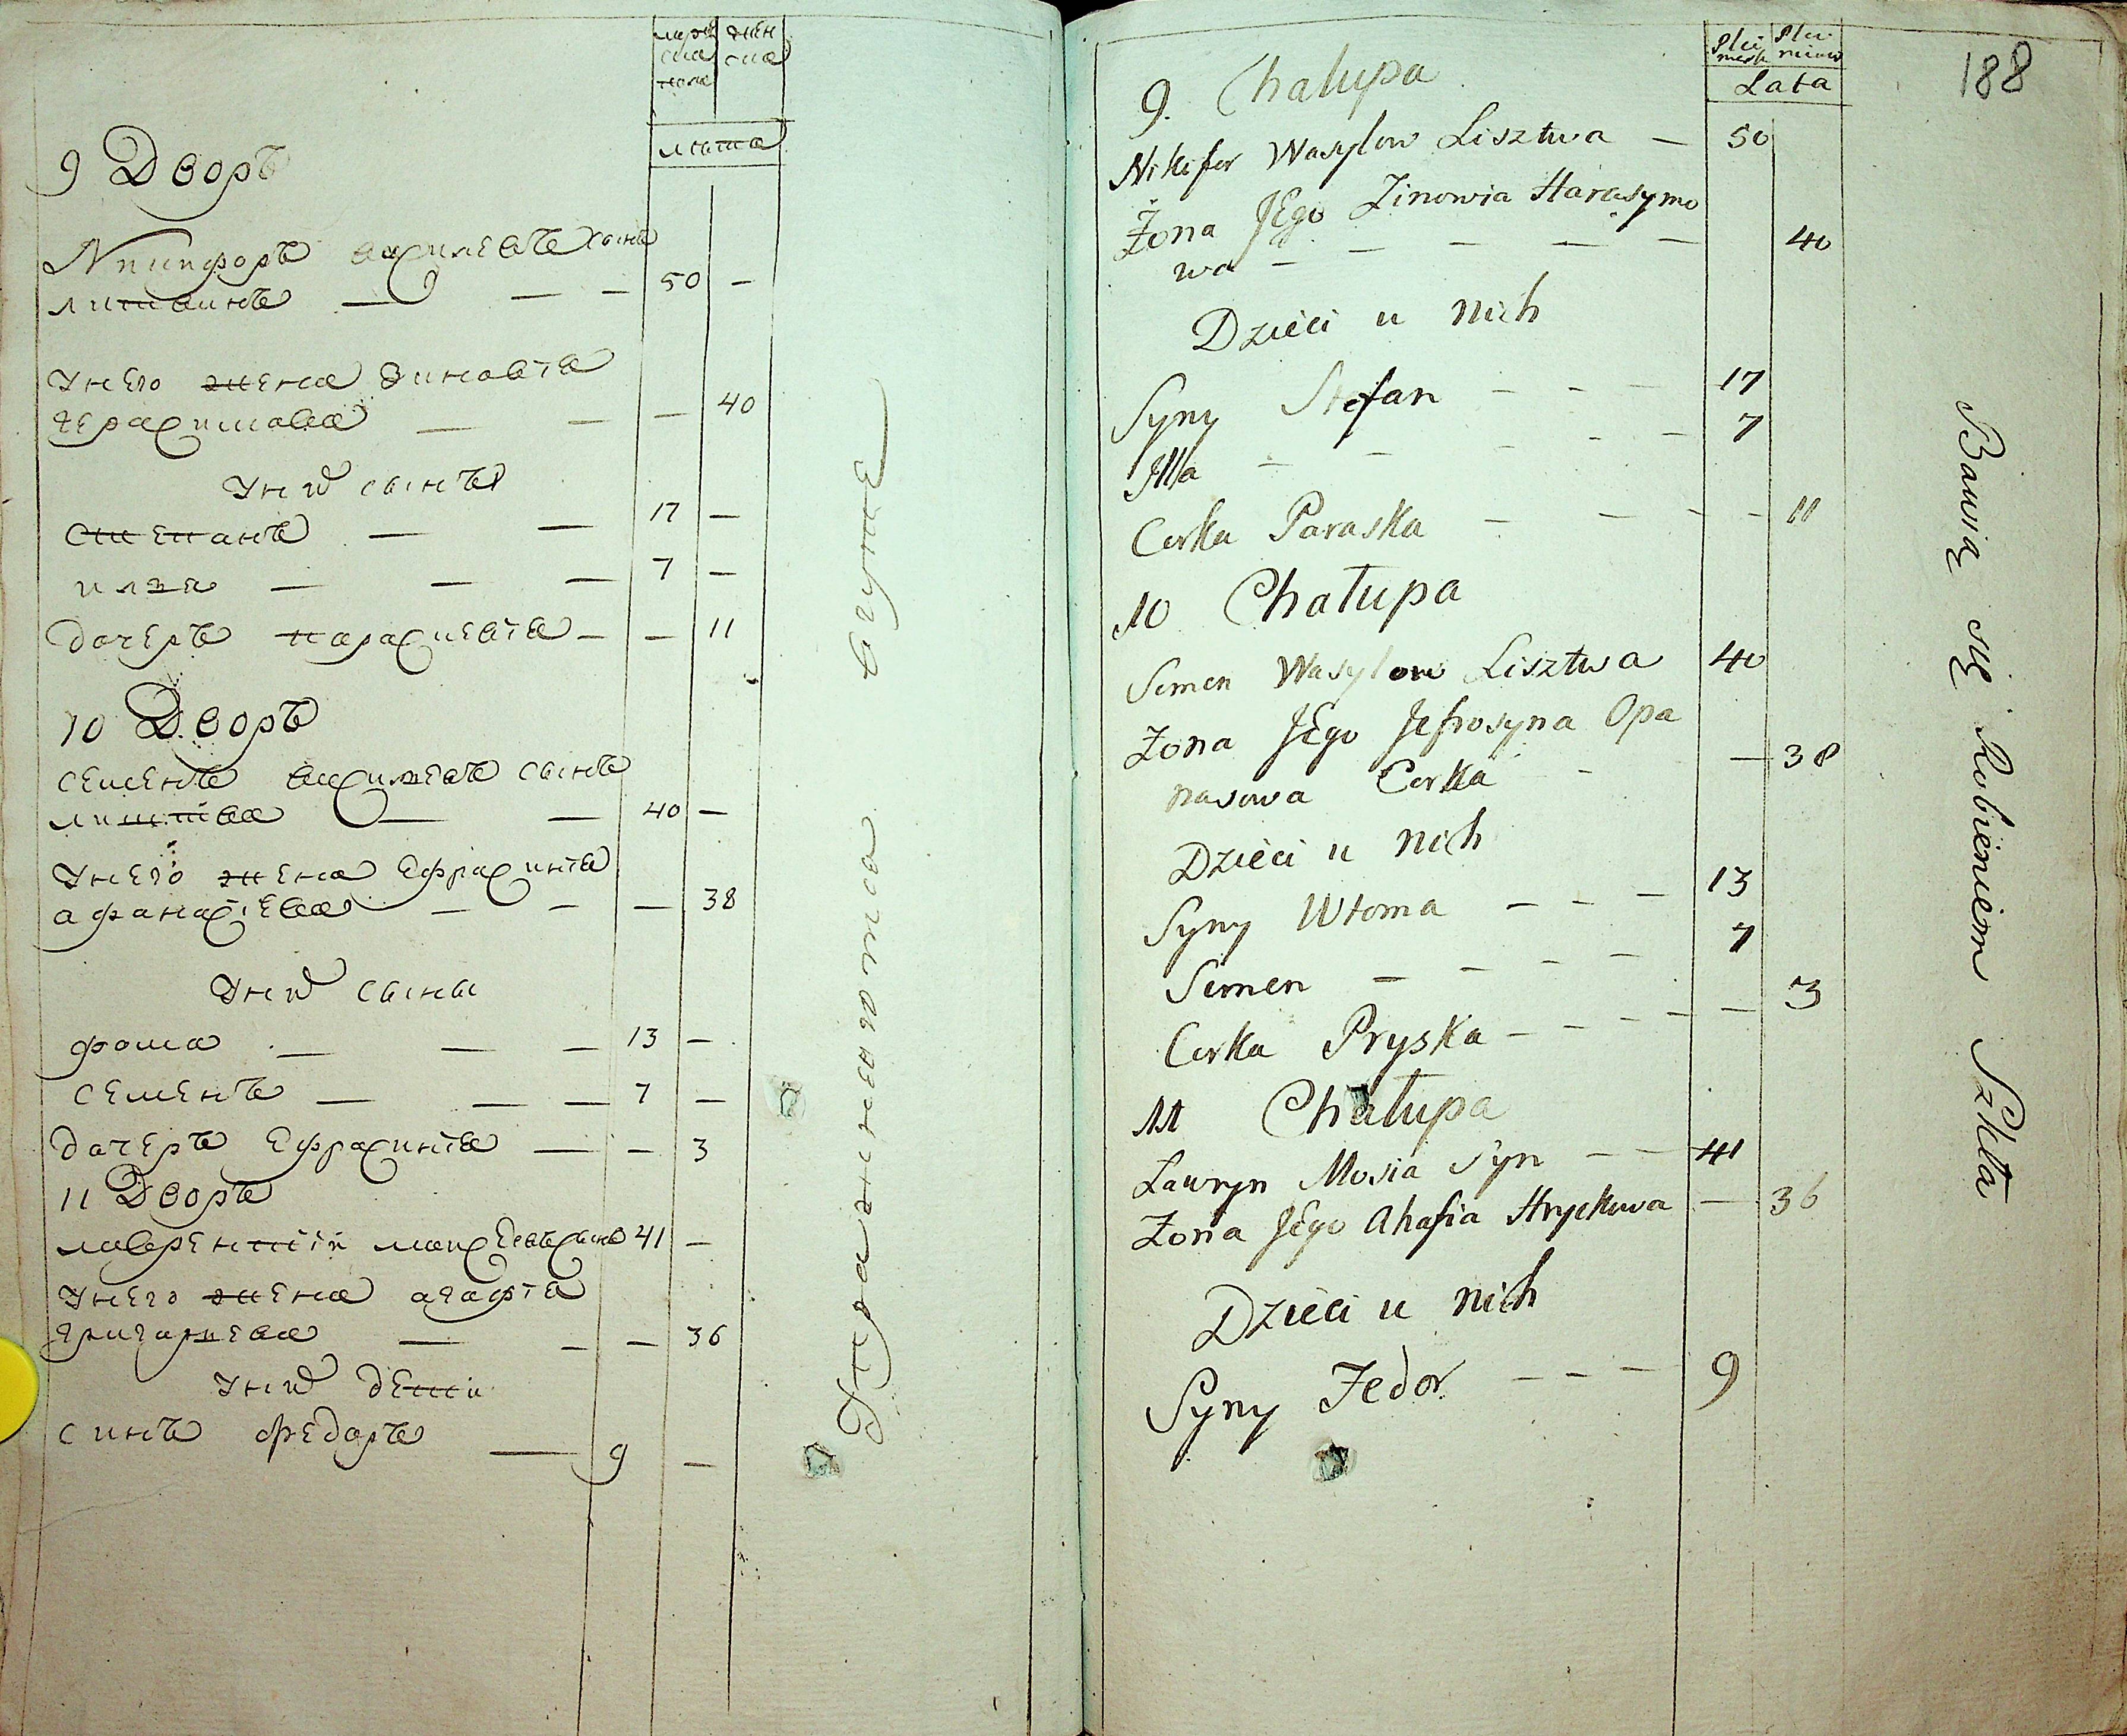 мужеска пола
женска
лѣта
9 Дворъ
Никифоръ василевъ сынъ
литвинъ — — — 50 —
Унего жена Зиновiя
герасимова — — — 40
Уних сынъ
Степанъ — — 17 —
илья — — — 7 —
дочеръ парасцевiя — — 11
10 Дворъ
семенъ василевъ сынъ
лиштва — — 40 —
Унего жена Ефрасинiя
афанасiева — — — 38
Уних сыны
фома — — — 13 —
семенъ — — — 7 —
дочеръ Ефрасинiя — — 3
11 Дворъ
лаврентiй моисеевъ сынъ 41 —
Унего жена агафiя
григориева — — — 36
Уних дети
синъ федоръ — 9 —
188
Lata
9. Chałupa
Nikifor Wasylow Lisztwa — 50
Żona JEgo Zinowia Harasymo
wa — — — — — 40
Dzieci u nich
Syny Stefan — — — 17
Jlla — — — — — 7
Corka Paraska — — — — 11
10 Chałupa
Semen Wasylow Lisztwa 40
Żona JEgo Jefrosyna Opa
nasowa Corka — — 38
Dzieci u nich
Syny Wtoma — — — 13
Semen — — — — 7
Corka Pryska — — — — — 3
11 Chałupa
Ławryn Mosia Syn — — 41
Żona JEgo Ahafia Hryckowa — 36
Dzieci u nich
Syny Fedor — — — 9
Bawią się Robieniem Szkła